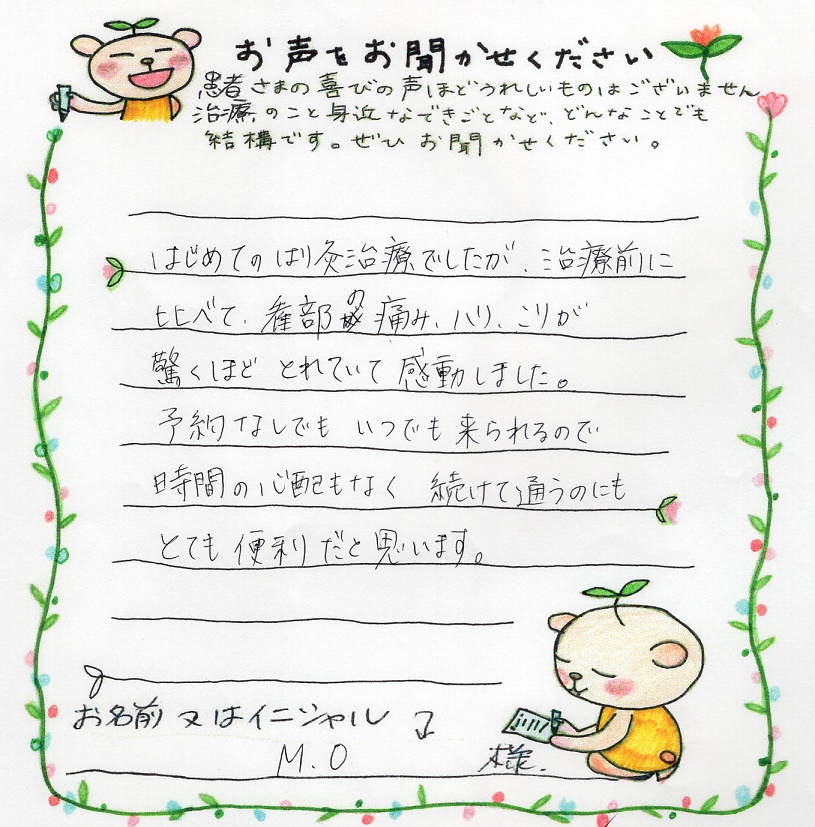 お声をお聞かせください
患者さまの喜びの声ほどうれしいものはございません
治療のこと身近なできごとなど、どんなことでも
結構です。ぜひお聞かせください。
はじめてのはり灸治療でしたが、治療前に
比べて、腫部の痛み、ハリ、こりが
驚くほど とれていて 感動しました。
予約なしでも いつでも 来られるので
時間の心配もなく 続けて通うのにも
とても 便利だと思います。
お名前 又はイニシャル
M.O 様